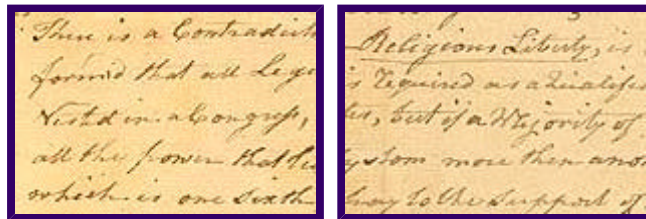 There is a Contradict
formed that all Lege
Vested in a Congress,
all the power that
which is one Sixth
Religious Liberty, is
is required as a Qualifi
but if a Majority of
System more then ano
pay to the Support of